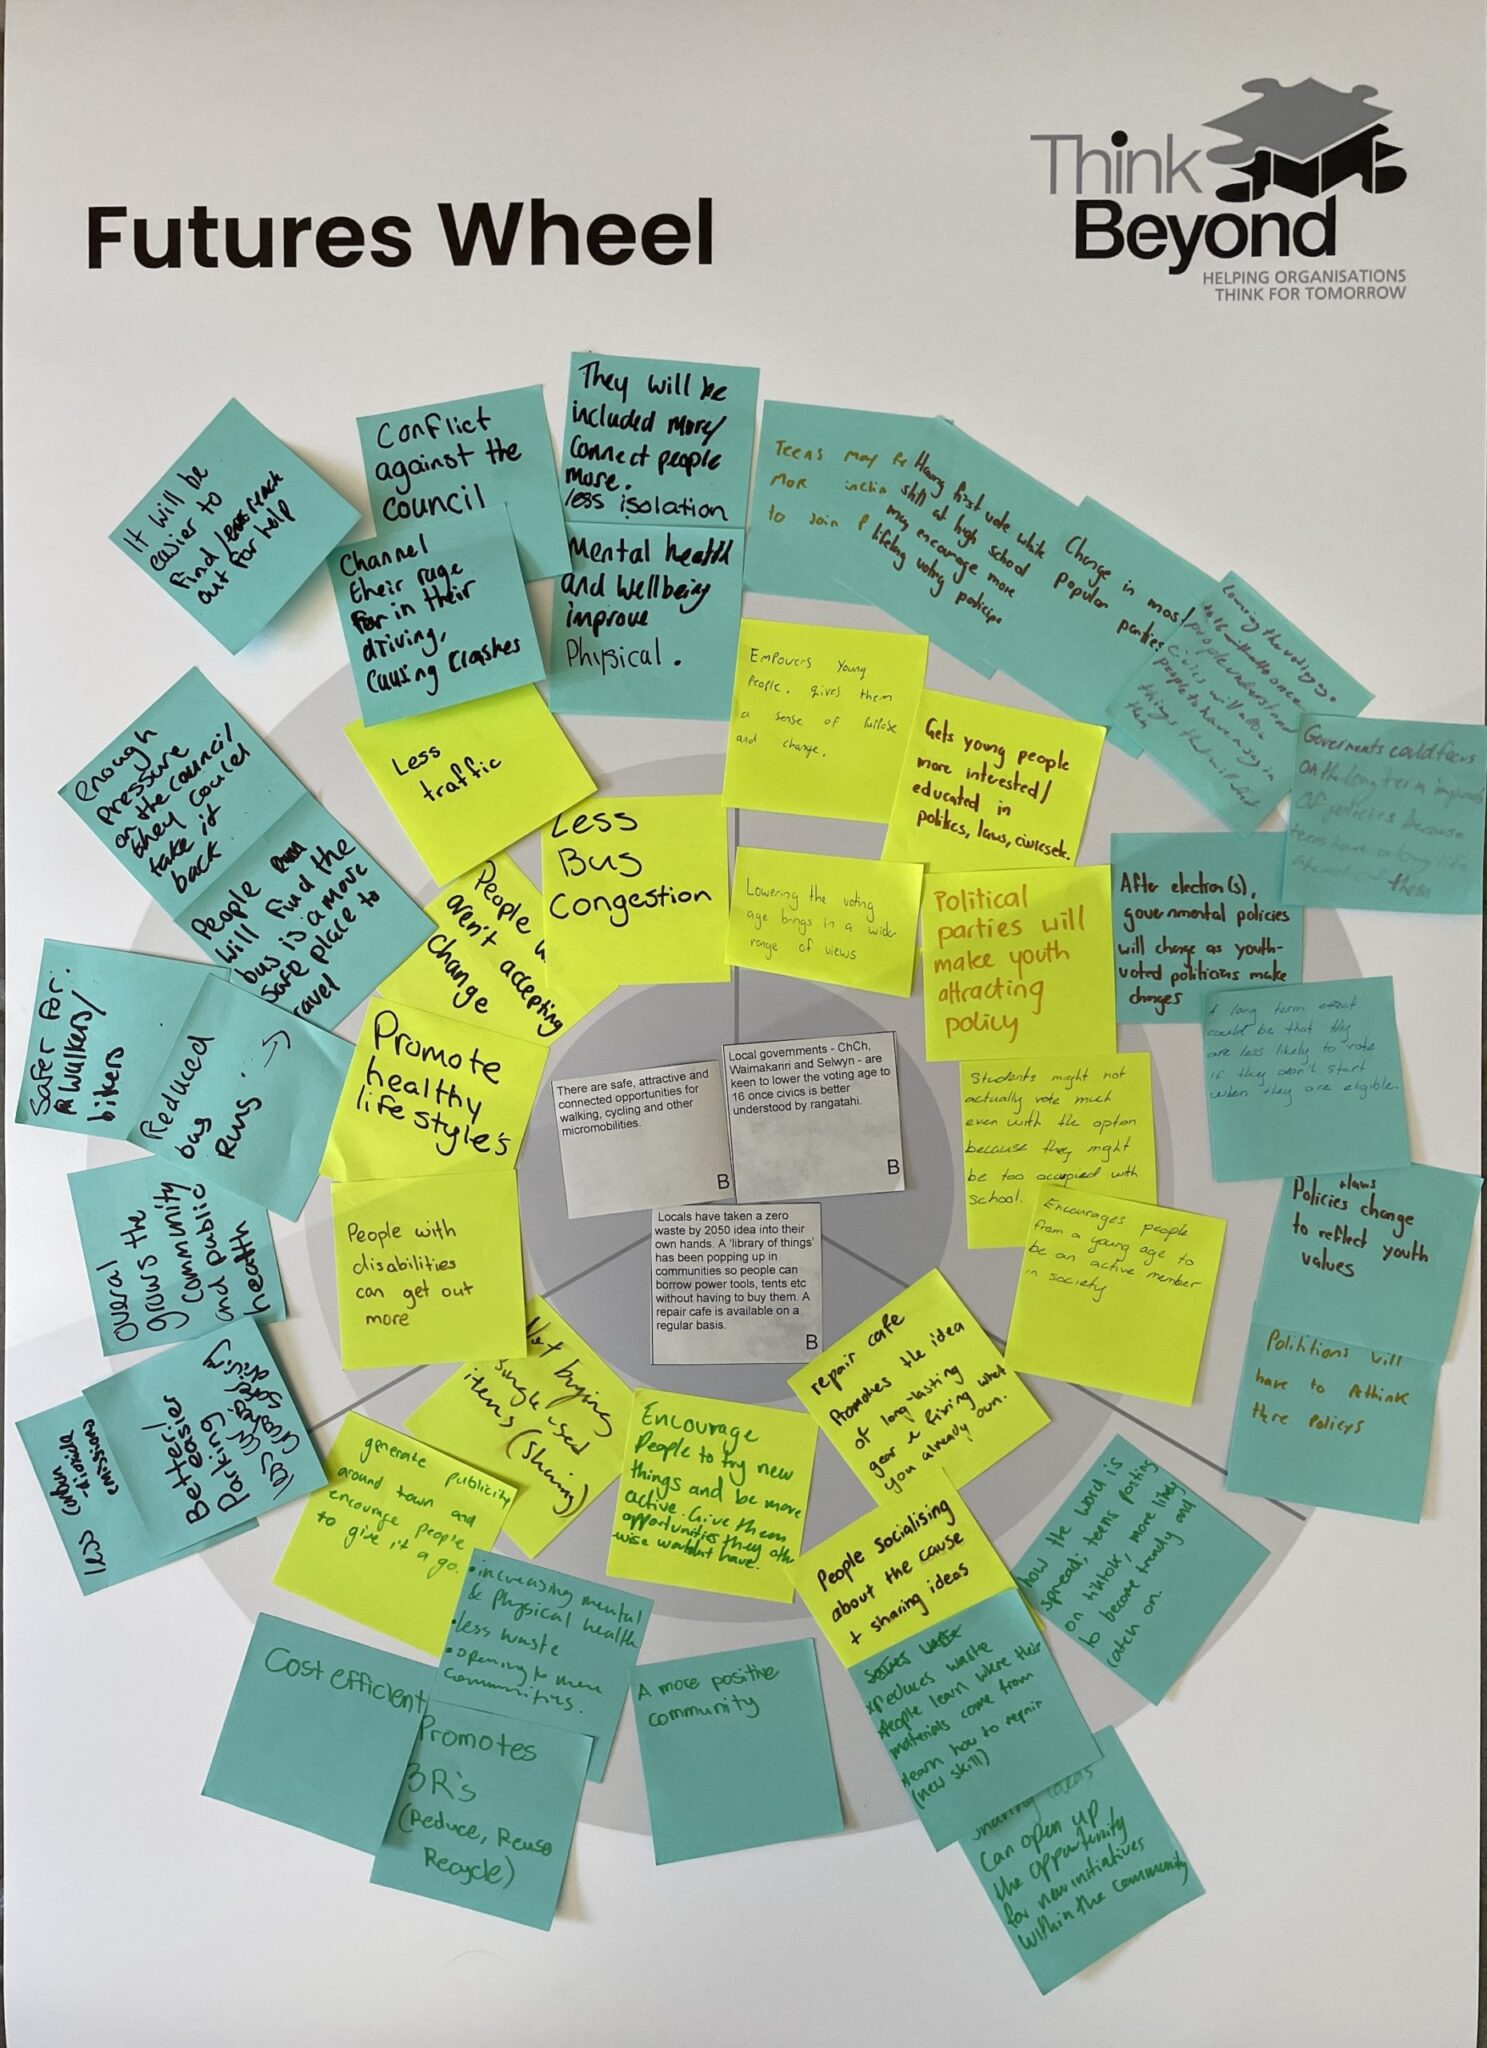 Think
Beyond
HELPING ORGANISATIONS
THINK FOR TOMORROW
Futures Wheel
It will be
easier to
find / reach
out for help
Conflict
against the
council
Channel
their rage
in their
driving,
causing crashes
They will be
included more/
connect people
more.
less isolation
Mental health
and wellbeing
improve
Physical.
Teens may
more
to join
Having first vote while
still at high school
may encourage more
lifelong voting
Change in most
popular parties
Lowering the voting age
to 16 once
people understand
civics will allow
people to have a say in
things that will
them
Goverments could focus
on the long term
of policies because
teens have a long life
ahead of them
enough
pressure
on the council
they could
take it
back
People
will find the
bus is a more
safe place to
ravel
Less
traffic
Less
Bus
Congestion
People
aren't accepting
change
Promote
healthy
life style's
People with
disabilities
can get out
more
Empowers young
people, gives them
a sense of
and change.
Gets young people
more interested/
educated in
politics, laws,
Lowering the voting
age brings in a wider
range of views
Political
parties will
make youth
attracting
policy
After election(s),
governmental policies
will change as youth-
voted politicians make
changes
A long term effect
could be that they
are less likely to vote
if they don't start
when they are eligible.
Students might not
actually vote much
even with the option
because they might
be too occupied with
school.
Encourages people
from a young age to
be an active member
in society
+laws
Policies change
to reflect youth
values
Polititions will
have to rethink
there policys
There are safe, attractive and
connected opportunities for
walking, cycling and other
micromobilities.
B
Local governments - ChCh,
Waimakariri and Selwyn - are
keen to lower the voting age to
16 once civics is better
understood by rangatahi.
B
Locals have taken a zero
waste by 2050 idea into their
own hands. A 'library of things'
has been popping up in
communities so people can
borrow power tools, tents etc
without having to buy them. A
repair cafe is available on a
regular basis.
B
Safer for:
walkers/
bikers
Reduced
bus
runs.
overal
grows the
community
and public
health
less carbon
-dioxide
emissions
Better/
easier
Parking
less
safer driving
Not buying
single-used
items (sharing)
generate publicity
around town and
encourage people
to give it a go.
Encourage
People to try new
things and be more
active. Give them
opportunities they oth
-wise wouldnt have.
repair cafe
Promotes the idea
of long-lasting
gear & fixing what
you already own.
People socialising
about the cause
+ sharing ideas
how the word is
spread; teens posting
on tiktok, more likely
to become trendly and
catch on.
Cost efficient
• increasing mental
& physical health
• less waste
• opening to more
communities.
Promotes
3R's
(Reduce, Reuse
Recycle)
A more positive
community
reduces waste
people learn where their
materials come from
learn how to repair
(new skill)
sharing ideas
Can open up
the opportunity
for new initiatives
within the community